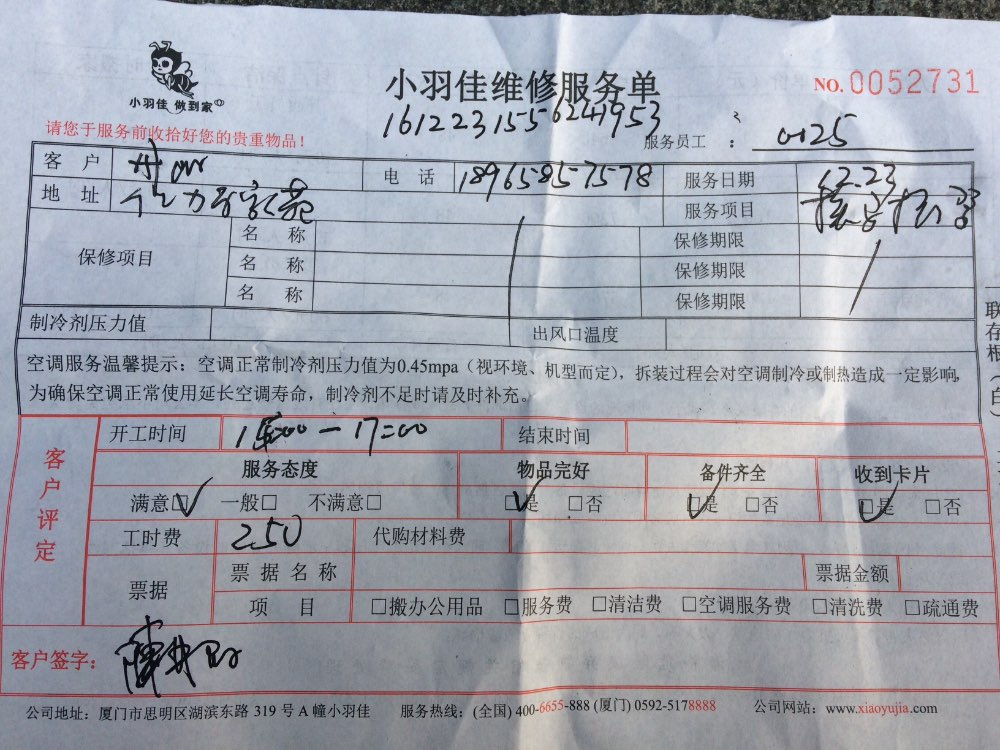 小羽佳 做到家
小羽佳维修服务单
NO. 0052731
16122315562419​53
请您于服务前收拾好您的贵重物品！
服务员工 ： 0125
客户 电话 18965857578 服务日期 12.23
地址 服务项目
保修项目 名称 保修期限
名称 保修期限
名称 保修期限
制冷剂压力值 出风口温度
空调服务温馨提示：空调正常制冷剂压力值为0.45mpa（视环境、机型而定），拆装过程会对空调制冷或制热造成一定影响，
为确保空调正常使用延长空调寿命，制冷剂不足时请及时补充。
客户评定
开工时间 —17:00 结束时间
服务态度 物品完好 备件齐全 收到卡片
满意□ 一般□ 不满意□ □是 □否 □是 □否 □是 □否
工时费 250 代购材料费
票据 票据名称 票据金额
项目 □搬办公用品 □服务费 □清洁费 □空调服务费 □清洗费 □疏通费
客户签字：
公司地址：厦门市思明区湖滨东路 319 号 A 幢小羽佳 服务热线：(全国) 400-6655-888 (厦门) 0592-5178888 公司网站：www.xiaoyujia.com